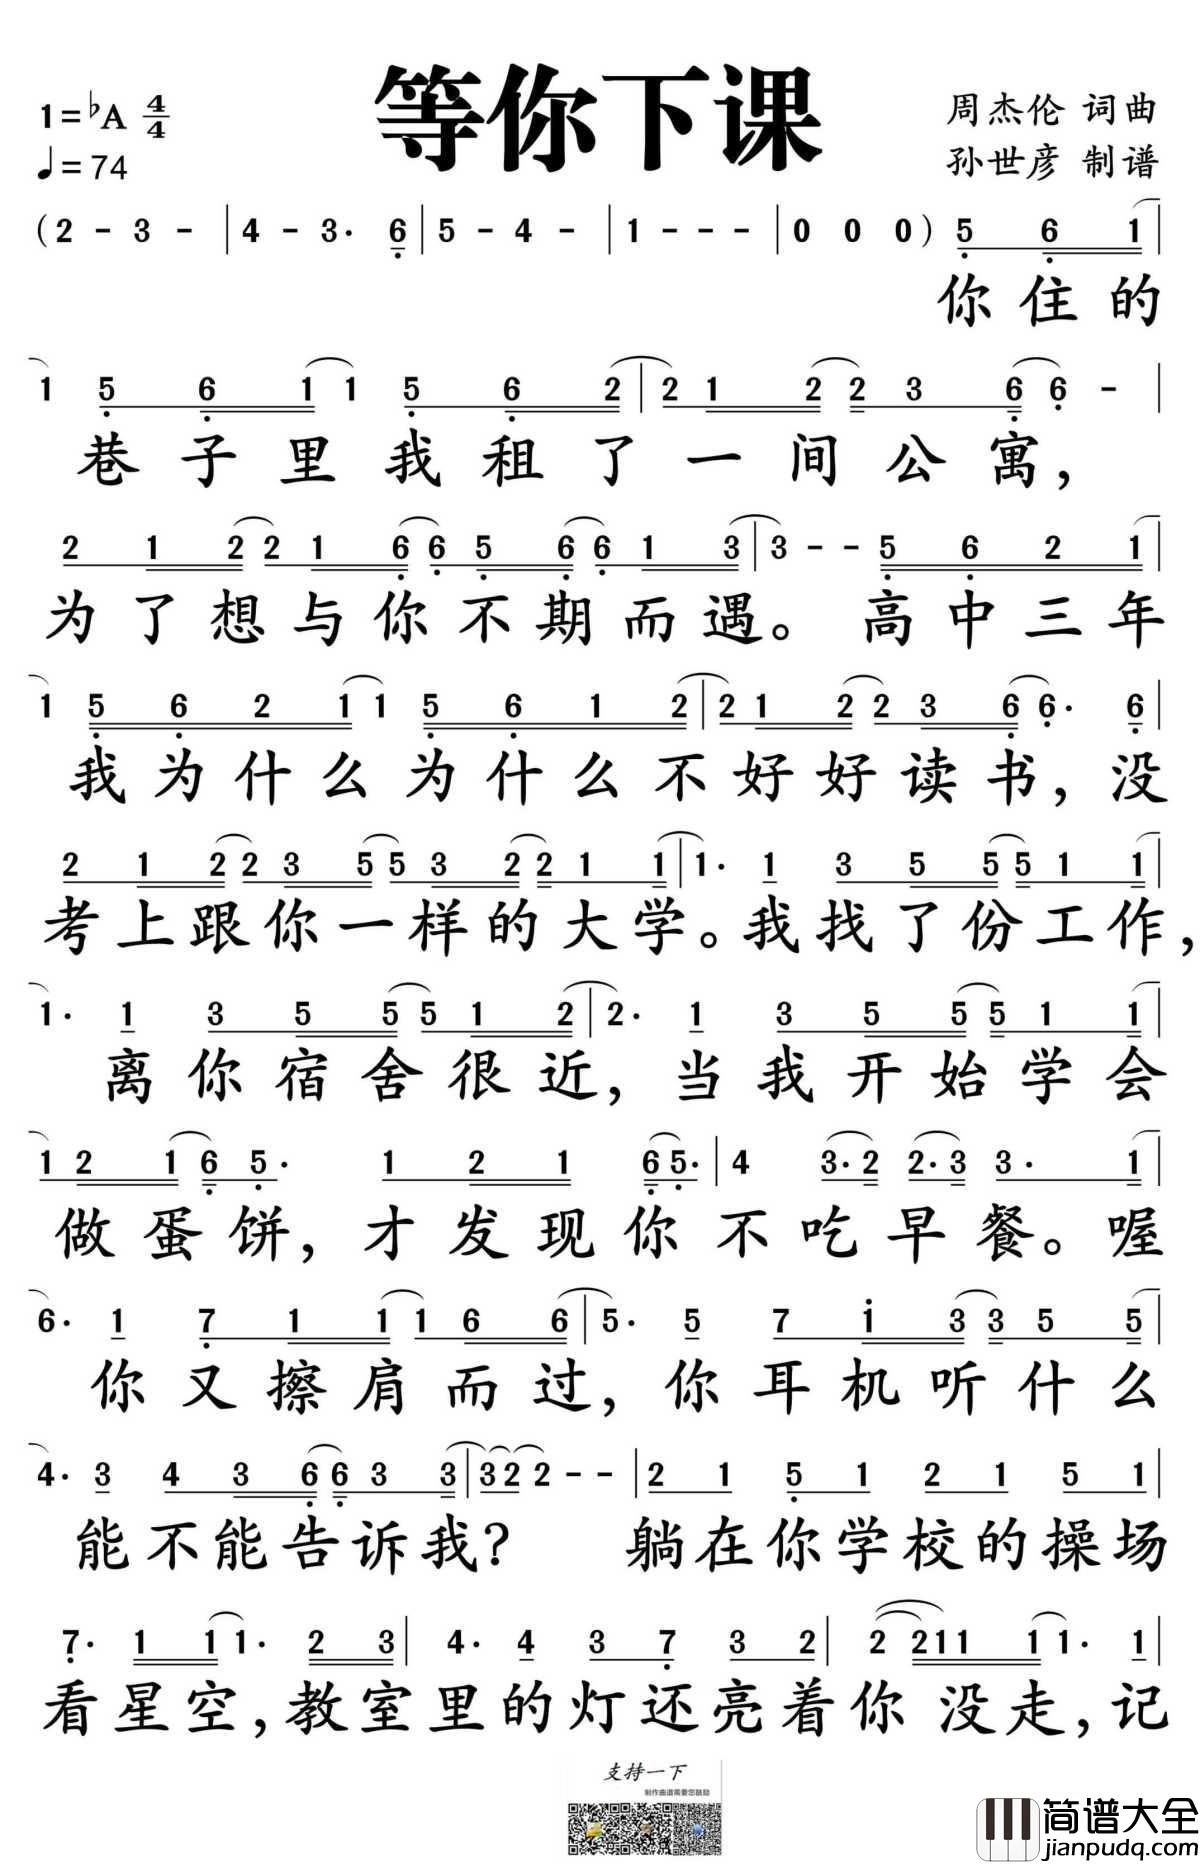 等你下课
1=♭A 4/4
♩=74
周杰伦 词曲
孙世彦 制谱
(2 - 3 - | 4 - 3· 6 | 5 - 4 - | 1 - - - | 0 0 0) 5 6 1 |
你住的
1 5 6 1 1 5 6 2 | 2 1 2 2 3 6 6 - |
巷子里我租了一间公寓,
2 1 2 2 1 6 6 5 6 6 1 3 | 3 - - 5 6 2 1 |
为了想与你不期而遇。高中三年
1 5 6 2 1 1 5 6 1 2 | 2 1 2 2 3 6 6· 6 |
我为什么为什么不好好读书,没
2 1 2 2 3 5 5 3 2 2 1 1 | 1· 1 3 5 5 5 1 1 |
考上跟你一样的大学。我找了份工作,
1· 1 3 5 5 5 1 2 | 2· 1 3 5 5 5 1 1 |
离你宿舍很近,当我开始学会
1 2 1 6 5· 1 2 1 6 5· | 4 3· 2 2· 3 3· 1 |
做蛋饼,才发现你不吃早餐。喔
6· 1 7 1 1 1 6 6 | 5· 5 7 i 3 3 5 5 |
你又擦肩而过,你耳机听什么
4· 3 4 3 6 6 3 3 | 3 2 2 - - | 2 1 5 1 2 1 5 1 |
能不能告诉我?躺在你学校的操场
7· 1 1 1· 2 3 | 4· 4 3 7 3 2 | 2 2 1 1 1 1· 1 |
看星空,教室里的灯还亮着你没走,记
支持一下
制作曲谱需要您鼓励
简谱大全
jianpudq.com